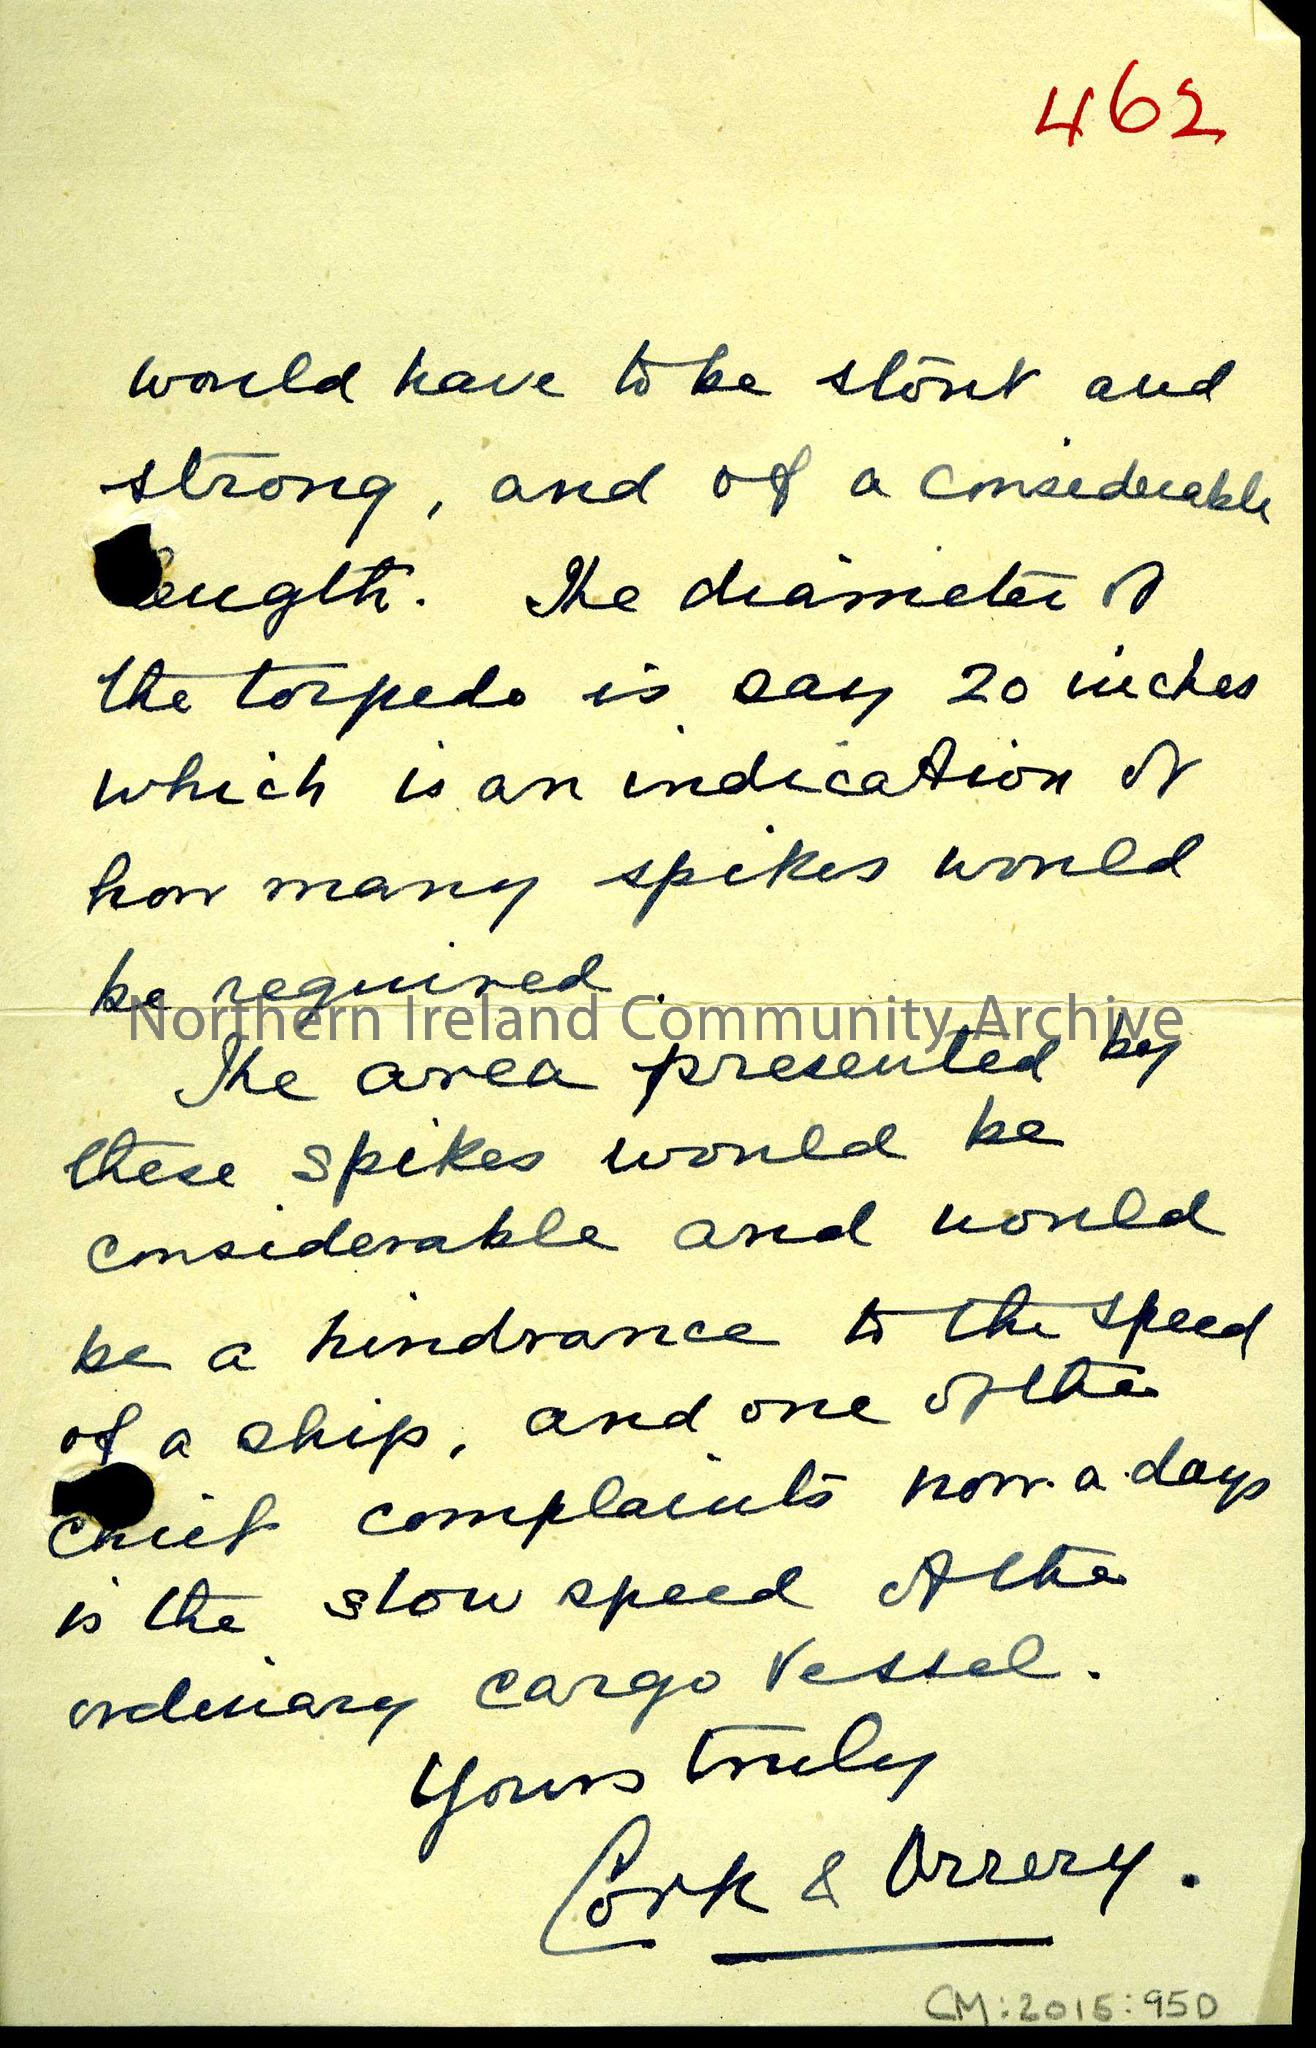 462
would have to be stout and
strong, and of a considerable
length. The diameter of
the torpedo is say 20 inches
which is an indication of
how many spikes would
be required.
Northern Ireland Community Archive
The area presented by
these spikes would be
considerable and would
be a hindrance to the speed
of a ship, and one of the
chief complaints now.a.days
is the slow speed of the
ordinary cargo vessel.
Yours truly
Cork & Orrery.
CM:2015:95D